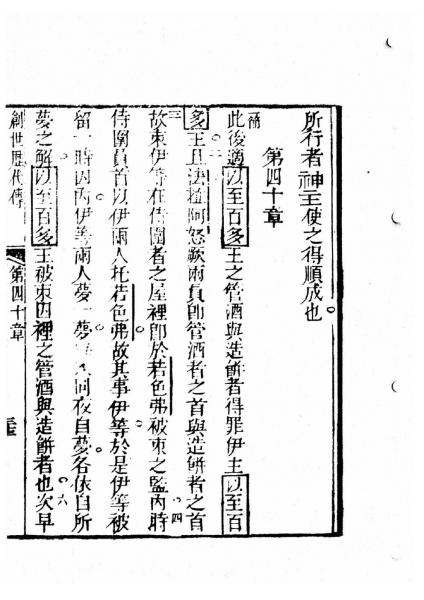 所行者神主使之得順成也
第四十章
一節 此後適以至百多王之管酒與造餅者得罪伊主以至百
多王且以至百多王怒厥兩員即管酒者之首與造餅者之首
三 故束伊等在侍圍者之屋裡即於若色弗被束之監內 四 時
侍圍員首以伊兩人托若色弗故其事伊等於是伊等被
留一時 五 因兩伊等兩人夢一夢 同夜自夢各依自所
夢之解以至百多王被束囚裡之管酒與造餅者也 六 次早
創世歷代傳
第四十章